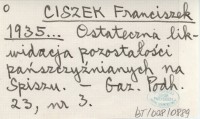 o CISZEK Franciszek
1935... Ostateczna lik-
widacja pozostałości
pańszczyźnianych na
Spiszu. – Gaz. Podh.
23, nr 3.
bT/008/0889